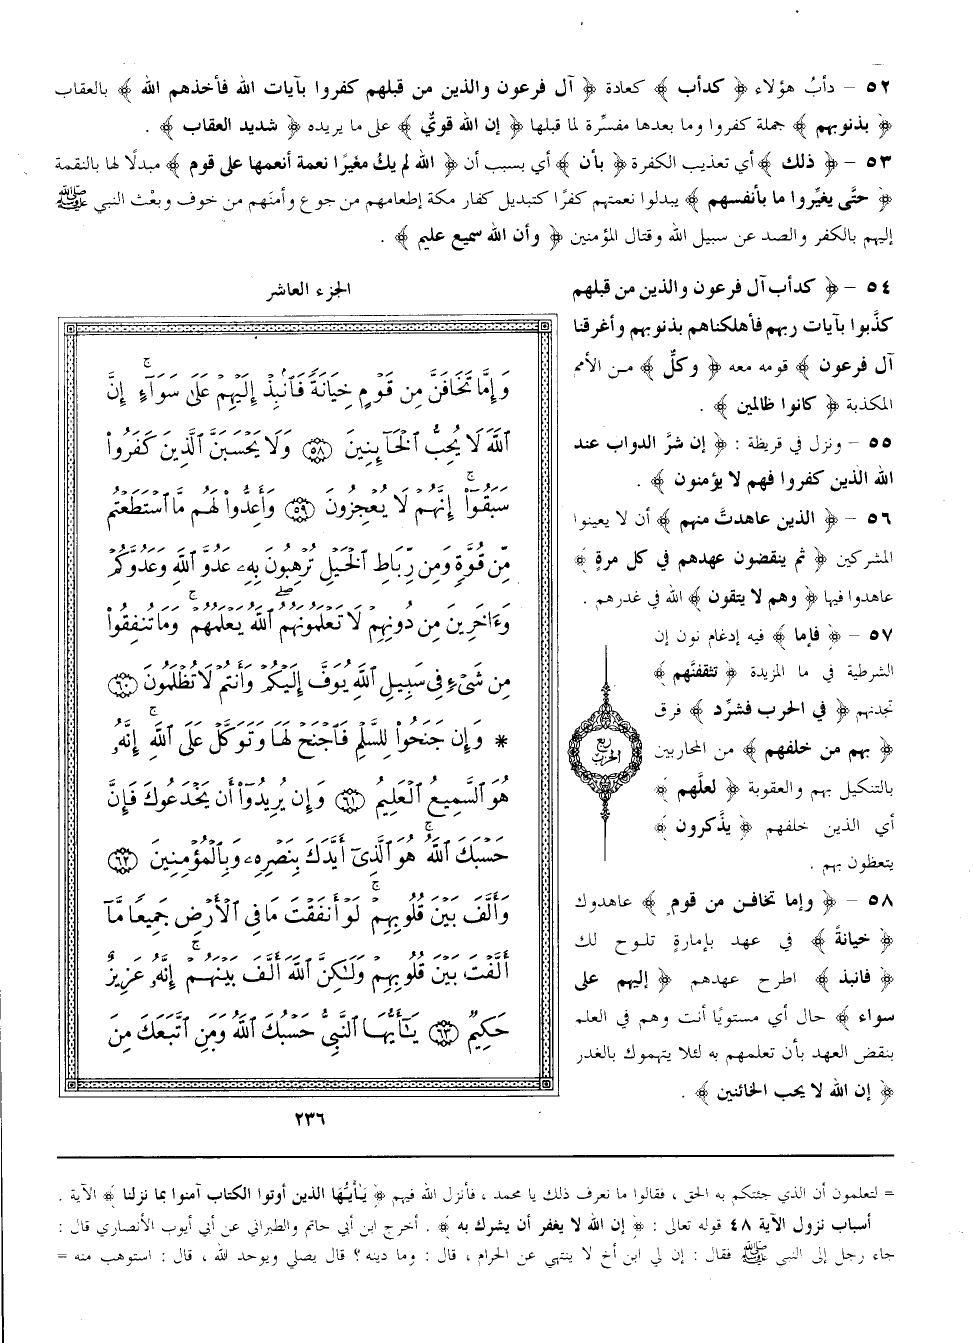 ٥٢ – دأبُ هؤلاء ﴿ كدأب ﴾ كعادة ﴿ آل فرعون والذين من قبلهم كفروا بآيات الله فأخذهم الله ﴾ بالعقاب
﴿ بذنوبهم ﴾ جملة كفروا وما بعدها مفسِّرة لما قبلها ﴿ إن الله قويٌّ ﴾ على ما يريده ﴿ شديد العقاب ﴾ .
٥٣ – ﴿ ذلك ﴾ أي تعذيب الكفرة ﴿ بأن ﴾ أي بسبب أن ﴿ الله لم يكُ مغيرًا نعمة أنعمها على قوم ﴾ مبدلًا لها بالنقمة
﴿ حتَّى يغيِّروا ما بأنفسهم ﴾ يبدلوا نعمتهم كفرًا كتبديل كفار مكة إطعامهم من جوع وأمنَهم من خوف وبعْث النبي ﷺ
إليهم بالكفر والصد عن سبيل الله وقتال المؤمنين ﴿ وأن الله سميع عليم ﴾ .
٥٤ – ﴿ كدأب آل فرعون والذين من قبلهم
كذَّبوا بآيات ربهم فأهلكناهم بذنوبهم وأغرقنا
آل فرعون ﴾ قومه معه ﴿ وكلٌّ ﴾ من الأمم
المكذبة ﴿ كانوا ظالمين ﴾ .
٥٥ – ونزل في قريظة : ﴿ إن شرَّ الدواب عند
الله الذين كفروا فهم لا يؤمنون ﴾ .
٥٦ – ﴿ الذين عاهدتَّ منهم ﴾ أن لا يعينوا
المشركين ﴿ ثم ينقضون عهدهم في كل مرةٍ ﴾
عاهدوا فيها ﴿ وهم لا يتقون ﴾ الله في غدرهم .
٥٧ – ﴿ فإما ﴾ فيه إدغام نون إن
الشرطية في ما المزيدة ﴿ تثقفنَّهم ﴾
تجدنهم ﴿ في الحرب فشرِّد ﴾ فرق
﴿ بهم من خلفهم ﴾ من المحاربين
بالتنكيل بهم والعقوبة ﴿ لعلَّهم ﴾
أي الذين خلفهم ﴿ يذَّكرون ﴾
يتعظون بهم .
٥٨ – ﴿ وإما تخافن من قوم ﴾ عاهدوك
﴿ خيانةً ﴾ في عهد بإمارةٍ تلوح لك
﴿ فانبذ ﴾ اطرح عهدهم ﴿ إليهم على
سواء ﴾ حال أي مستويًا أنت وهم في العلم
بنقض العهد بأن تعلمهم به لئلا يتهموك بالغدر
﴿ إن الله لا يحب الخائنين ﴾ .
ربع
الحزب
الجزء العاشر
وَإِمَّا تَخَافَنَّ مِن قَوْمٍ خِيَانَةً فَٱنۢبِذْ إِلَيْهِمْ عَلَىٰ سَوَآءٍ ۚ إِنَّ
ٱللَّهَ لَا يُحِبُّ ٱلْخَآئِنِينَ ٥٨ وَلَا يَحْسَبَنَّ ٱلَّذِينَ كَفَرُوا۟
سَبَقُوٓا۟ ۚ إِنَّهُمْ لَا يُعْجِزُونَ ٥٩ وَأَعِدُّوا۟ لَهُم مَّا ٱسْتَطَعْتُم
مِّن قُوَّةٍ وَمِن رِّبَاطِ ٱلْخَيْلِ تُرْهِبُونَ بِهِۦ عَدُوَّ ٱللَّهِ وَعَدُوَّكُمْ
وَءَاخَرِينَ مِن دُونِهِمْ لَا تَعْلَمُونَهُمُ ٱللَّهُ يَعْلَمُهُمْ ۚ وَمَا تُنفِقُوا۟
مِن شَىْءٍ فِى سَبِيلِ ٱللَّهِ يُوَفَّ إِلَيْكُمْ وَأَنتُمْ لَا تُظْلَمُونَ ٦٠
* وَإِن جَنَحُوا۟ لِلسَّلْمِ فَٱجْنَحْ لَهَا وَتَوَكَّلْ عَلَى ٱللَّهِ ۚ إِنَّهُۥ
هُوَ ٱلسَّمِيعُ ٱلْعَلِيمُ ٦١ وَإِن يُرِيدُوٓا۟ أَن يَخْدَعُوكَ فَإِنَّ
حَسْبَكَ ٱللَّهُ ۚ هُوَ ٱلَّذِىٓ أَيَّدَكَ بِنَصْرِهِۦ وَبِٱلْمُؤْمِنِينَ ٦٢
وَأَلَّفَ بَيْنَ قُلُوبِهِمْ ۚ لَوْ أَنفَقْتَ مَا فِى ٱلْأَرْضِ جَمِيعًا مَّآ
أَلَّفْتَ بَيْنَ قُلُوبِهِمْ وَلَٰكِنَّ ٱللَّهَ أَلَّفَ بَيْنَهُمْ ۚ إِنَّهُۥ عَزِيزٌ
حَكِيمٌ ٦٣ يَٰٓأَيُّهَا ٱلنَّبِىُّ حَسْبُكَ ٱللَّهُ وَمَنِ ٱتَّبَعَكَ مِنَ
٢٣٦
= لتعلمون أن الذي جئتكم به الحق ، فقالوا ما نعرف ذلك يا محمد ، فأنزل الله فيهم ﴿ يٰأيُّها الذين أوتوا الكتاب آمنوا بما نزلنا ﴾ الآية .
أسباب نزول الآية ٤٨ قوله تعالى : ﴿ إن الله لا يغفر أن يشرك به ﴾ . أخرج ابن أبي حاتم والطبراني عن أبي أيوب الأنصاري قال :
جاء رجل إلى النبي ﷺ فقال : إن لي ابن أخ لا ينتهي عن الحرام ، قال : وما دينه ؟ قال يصلي ويوحد الله ، قال : استوهب منه =